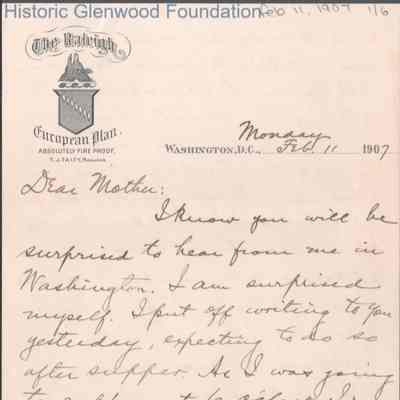 Historic Glenwood Foundation
Feb 11, 1907 1/6
The Raleigh
European Plan.
ABSOLUTELY FIRE PROOF,
T. J. TALTY, MANAGER
Monday
WASHINGTON, D.C., Feb. 11 1907
Dear Mother:
I know you will be
surprised to hear from me in
Washington. I am surprised
myself. I put off writing to you
yesterday, expecting to do so
after supper. As I was going